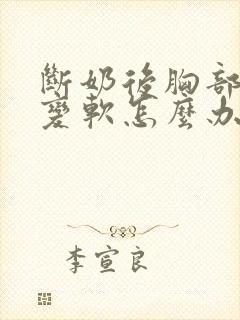 斷奶後胸部
變軟怎麼办
李宣良